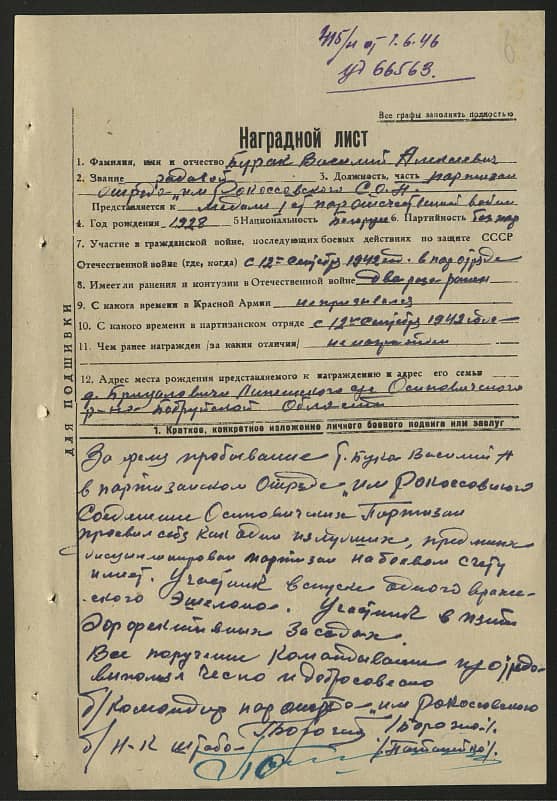 415/н от 1.6.46
уд 66563.
Все графы заполнить полностью
Наградной лист
1. Фамилия, имя и отчество Бурак Василий
2. Звание рядовой 3. Должность, часть партизан
отряда "им Рокоссовского С.О.П.
Представляется к медали отечественной войны
4. Год рождения 1928 5 Национальность Беларус 6. Партийность безпар
7. Участие в гражданской войне, последующих боевых действиях по защите СССР
Отечественной войне (где, когда) с 12го 1942г. в
8. Имеет ли ранения и контузии в Отечественной войне два раза ранен
9. С какого времени в Красной Армии не призывался
10. С какого времени в партизанском отряде с 12го 1942 года
11. Чем ранее награжден /за какия отличия/ не награжден
12. Адрес места рождения представляемого к награждению и адрес его семьи
д. Брицаловичи с/с Осиповичского
р-на Бобруйской Области
1. Краткое, конкретное изложение личного боевого подвига или заслуг
За время пребывание т. Бурак Василий А
в партизанском Отряде "им Рокоссовского
Соединение Осиповичских Партизан
проявил себя как один из лучших,
дисциплинирован партизан на боевом счету
имеет. Участник в спуске одного враже-
ского Эшелона. Участник в пяти
Эффективных Засадах.
Все поручение Командывание
выполнял Чесно и добросовесно
б/Командир пар отряда "им Рокоссовского
б/Н-К штаба
ДЛЯ ПОДШИВКИ